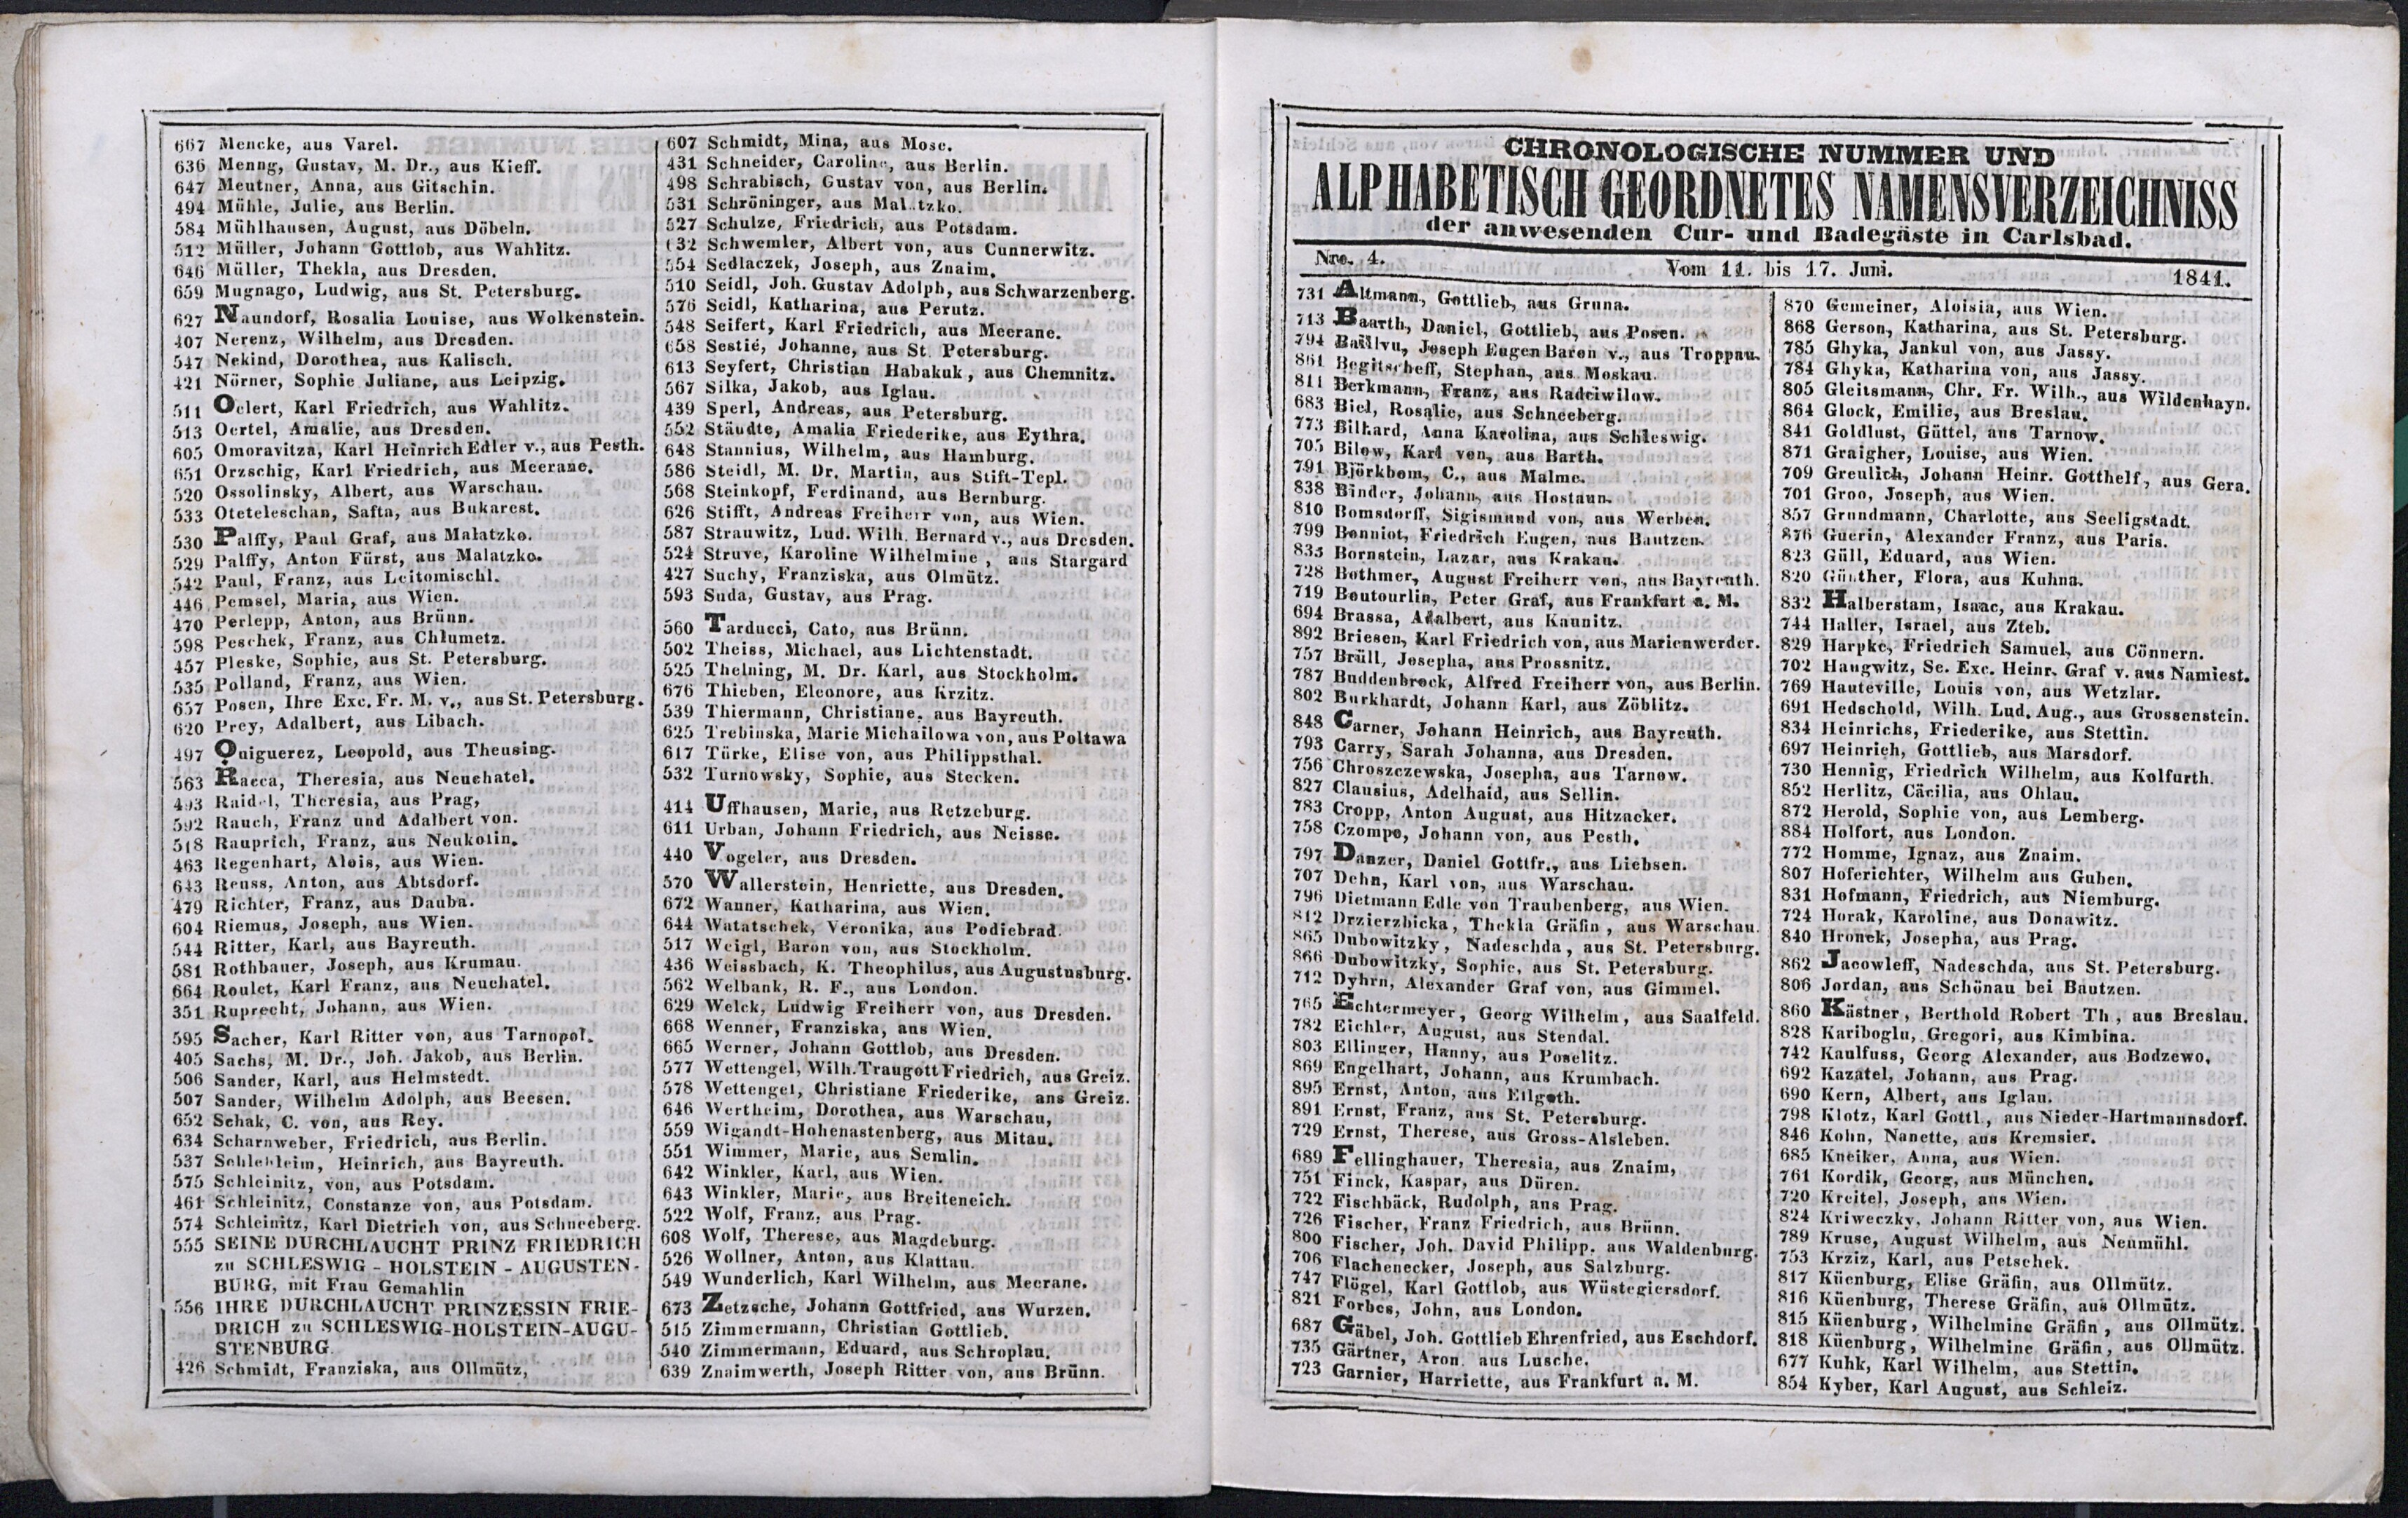 667 Mencke, aus Varel.
636 Menng, Gustav, M. Dr., aus Kieff.
647 Meutner, Anna, aus Gitschin.
494 Mühle, Julie, aus Berlin.
584 Mühlhausen, August, aus Döbeln.
512 Müller, Johann Gottlob, aus Wahlitz.
646 Müller, Thekla, aus Dresden.
659 Mugnago, Ludwig, aus St. Petersburg.
627 Naundorf, Rosalia Louise, aus Wolkenstein.
407 Nerenz, Wilhelm, aus Dresden.
547 Nekind, Dorothea, aus Kalisch.
421 Nörner, Sophie Juliane, aus Leipzig.
511 Oelert, Karl Friedrich, aus Wahlitz.
513 Oertel, Amalie, aus Dresden.
605 Omoravitza, Karl Heinrich Edler v., aus Pesth.
651 Orzschig, Karl Friedrich, aus Meerane.
520 Ossolinsky, Albert, aus Warschau.
533 Oteteleschan, Safta, aus Bukarest.
530 Palffy, Paul Graf, aus Malatzko.
529 Palffy, Anton Fürst, aus Malatzko.
542 Paul, Franz, aus Leitomischl.
446 Pemsel, Maria, aus Wien.
470 Perlepp, Anton, aus Brünn.
598 Peschek, Franz, aus Chlumetz.
457 Pleske, Sophie, aus St. Petersburg.
535 Polland, Franz, aus Wien.
657 Posen, Ihre Exc. Fr. M. v., aus St. Petersburg.
620 Prey, Adalbert, aus Libach.
497 Quiguerez, Leopold, aus Theusing.
563 Racca, Theresia, aus Neuchatel.
493 Raidel, Theresia, aus Prag,
592 Rauch, Franz und Adalbert von.
518 Rauprich, Franz, aus Neukolin.
463 Regenhart, Alois, aus Wien.
643 Reuss, Anton, aus Abtsdorf.
479 Richter, Franz, aus Dauba.
604 Riemus, Joseph, aus Wien.
544 Ritter, Karl, aus Bayreuth.
581 Rothbauer, Joseph, aus Krumau.
664 Roulet, Karl Franz, aus Neuchatel.
351 Ruprecht, Johann, aus Wien.
595 Sacher, Karl Ritter von, aus Tarnopol.
405 Sachs, M. Dr., Joh. Jakob, aus Berlin.
506 Sander, Karl, aus Helmstedt.
507 Sander, Wilhelm Adolph, aus Beesen.
652 Schak, C. von, aus Rey.
634 Scharnweber, Friedrich, aus Berlin.
537 Schlehleim, Heinrich, aus Bayreuth.
575 Schleinitz, von, aus Potsdam.
461 Schleinitz, Constanze von, aus Potsdam.
574 Schleinitz, Karl Dietrich von, aus Schneeberg.
555 SEINE DURCHLAUCHT PRINZ FRIEDRICH
zu SCHLESWIG - HOLSTEIN - AUGUSTEN-
BURG, mit Frau Gemahlin
556 IHRE DURCHLAUCHT PRINZESSIN FRIE-
DRICH zu SCHLESWIG-HOLSTEIN-AUGU-
STENBURG.
426 Schmidt, Franziska, aus Ollmütz,
607 Schmidt, Mina, aus Mosc.
431 Schneider, Caroline, aus Berlin.
498 Schrabisch, Gustav von, aus Berlin.
531 Schröninger, aus Malatzko.
527 Schulze, Friedrich, aus Potsdam.
632 Schwemler, Albert von, aus Cunnerwitz.
554 Sedlaczek, Joseph, aus Znaim.
510 Seidl, Joh. Gustav Adolph, aus Schwarzenberg.
576 Seidl, Katharina, aus Perutz.
548 Seifert, Karl Friedrich, aus Meerane.
658 Sestié, Johanne, aus St. Petersburg.
613 Seyfert, Christian Habakuk, aus Chemnitz.
567 Silka, Jakob, aus Iglau.
439 Sperl, Andreas, aus Petersburg.
552 Stäudte, Amalia Friederike, aus Eythra.
648 Stannius, Wilhelm, aus Hamburg.
586 Steidl, M. Dr. Martin, aus Stift-Tepl.
568 Steinkopf, Ferdinand, aus Bernburg.
626 Stifft, Andreas Freiherr von, aus Wien.
587 Strauwitz, Lud. Wilh. Bernard v., aus Dresden.
524 Struve, Karoline Wilhelmine, aus Stargard
427 Suchy, Franziska, aus Olmütz.
593 Suda, Gustav, aus Prag.
560 Tarducci, Cato, aus Brünn.
502 Theiss, Michael, aus Lichtenstadt.
525 Thelning, M. Dr. Karl, aus Stockholm.
676 Thieben, Eleonore, aus Krzitz.
539 Thiermann, Christiane, aus Bayreuth.
625 Trebinska, Marie Michailowa von, aus Poltawa
617 Türke, Elise von, aus Philippsthal.
532 Turnowsky, Sophie, aus Stecken.
414 Uffhausen, Marie, aus Retzeburg.
611 Urban, Johann Friedrich, aus Neisse.
440 Vogeler, aus Dresden.
570 Wallerstein, Henriette, aus Dresden.
672 Wanner, Katharina, aus Wien.
644 Watatschek, Veronika, aus Podiebrad.
517 Weigl, Baron von, aus Stockholm.
436 Weissbach, K. Theophilus, aus Augustusburg.
562 Welbank, R. F., aus London.
629 Welck, Ludwig Freiherr von, aus Dresden.
668 Wenner, Franziska, aus Wien.
665 Werner, Johann Gottlob, aus Dresden.
577 Wettengel, Wilh. Traugott Friedrich, aus Greiz.
578 Wettengel, Christiane Friederike, ans Greiz.
646 Wertheim, Dorothea, aus Warschau,
559 Wigandt-Hohenastenberg, aus Mitau.
551 Wimmer, Marie, aus Semlin.
642 Winkler, Karl, aus Wien.
643 Winkler, Marie, aus Breiteneich.
522 Wolf, Franz, aus Prag.
608 Wolf, Therese, aus Magdeburg.
526 Wollner, Anton, aus Klattau.
549 Wunderlich, Karl Wilhelm, aus Meerane.
673 Zetzsche, Johann Gottfried, aus Wurzen.
515 Zimmermann, Christian Gottlieb.
540 Zimmermann, Eduard, aus Schroplau.
639 Znaimwerth, Joseph Ritter von, aus Brünn.
CHRONOLOGISCHE NUMMER UND
ALPHABETISCH GEORDNETES NAMENSVERZEICHNISS
der anwesenden Cur- und Badegäste in Carlsbad.
Nro. 4. Vom 11. bis 17. Juni. 1841.
731 Altmann, Gottlieb, aus Gruna.
713 Baarth, Daniel, Gottlieb, aus Posen.
794 Baillvu, Joseph Eugen Baron v., aus Troppau.
861 Begitscheff, Stephan, aus Moskau.
811 Berkmann, Franz, aus Radciwilow.
683 Biel, Rosalie, aus Schneeberg.
773 Bilhard, Anna Karolina, aus Schleswig.
705 Bilow, Karl von, aus Barth.
791 Björkbom, C., aus Malme.
838 Binder, Johann, aus Hostaun.
810 Bomsdorff, Sigismund von, aus Werben.
799 Bonniot, Friedrich Eugen, aus Bautzen.
835 Bornstein, Lazar, aus Krakau.
728 Bothmer, August Freiherr von, aus Bayreuth.
719 Boutourlin, Peter Graf, aus Frankfurt a. M.
694 Brassa, Adalbert, aus Kaunitz.
892 Briesen, Karl Friedrich von, aus Marienwerder.
757 Brüll, Josepha, aus Prossnitz.
787 Buddenbrock, Alfred Freiherr von, aus Berlin.
802 Burkhardt, Johann Karl, aus Zöblitz.
848 Carner, Johann Heinrich, aus Bayreuth.
793 Carry, Sarah Johanna, aus Dresden.
756 Chroszczewska, Josepha, aus Tarnow.
827 Clausius, Adelhaid, aus Sellin.
783 Cropp, Anton August, aus Hitzacker.
758 Czompo, Johann von, aus Pesth.
797 Danzer, Daniel Gottfr., aus Liebsen.
707 Dehn, Karl von, aus Warschau.
796 Dietmann Edle von Traubenberg, aus Wien.
812 Drzierzbicka, Thekla Gräfin, aus Warschau.
865 Dubowitzky, Nadeschda, aus St. Petersburg.
866 Dubowitzky, Sophie, aus St. Petersburg.
712 Dyhrn, Alexander Graf von, aus Gimmel.
765 Echtermeyer, Georg Wilhelm, aus Saalfeld.
782 Eichler, August, aus Stendal.
803 Ellinger, Hanny, aus Poselitz.
869 Engelhart, Johann, aus Krumbach.
895 Ernst, Anton, aus Ellgoth.
891 Ernst, Franz, aus St. Petersburg.
729 Ernst, Therese, aus Gross-Alsleben.
689 Fellinghauer, Theresia, aus Znaim,
751 Finck, Kaspar, aus Düren.
722 Fischbäck, Rudolph, aus Prag.
726 Fischer, Franz Friedrich, aus Brünn.
800 Fischer, Joh. David Philipp. aus Waldenburg.
706 Flachenecker, Joseph, aus Salzburg.
747 Flögel, Karl Gottlob, aus Wüstegiersdorf.
821 Forbes, John, aus London.
687 Gäbel, Joh. Gottlieb Ehrenfried, aus Eschdorf.
735 Gärtner, Aron aus Lusche.
723 Garnier, Harriette, aus Frankfurt a. M.
870 Gemeiner, Aloisia, aus Wien.
868 Gerson, Katharina, aus St. Petersburg.
785 Ghyka, Jankul von, aus Jassy.
784 Ghyka, Katharina von, aus Jassy.
805 Gleitsmann, Chr. Fr. Wilh., aus Wildenhayn.
864 Glock, Emilie, aus Breslau.
841 Goldlust, Güttel, aus Tarnow.
871 Graigher, Louise, aus Wien.
709 Greulich, Johann Heinr. Gotthelf, aus Gera.
701 Groo, Joseph, aus Wien.
857 Grundmann, Charlotte, aus Seeligstadt.
876 Guerin, Alexander Franz, aus Paris.
823 Güll, Eduard, aus Wien.
820 Günther, Flora, aus Kuhna.
832 Halberstam, Isaac, aus Krakau.
744 Haller, Israel, aus Zteb.
829 Harpke, Friedrich Samuel, aus Cönnern.
702 Haugwitz, Se. Exc. Heinr. Graf v. aus Namiest.
769 Hauteville, Louis von, aus Wetzlar.
691 Hedschold, Wilh. Lud. Aug., aus Grossenstein.
834 Heinrichs, Friederike, aus Stettin.
697 Heinrich, Gottlieb, aus Marsdorf.
730 Hennig, Friedrich Wilhelm, aus Kolfurth.
852 Herlitz, Cäcilia, aus Ohlau.
872 Herold, Sophie von, aus Lemberg.
884 Holfort, aus London.
772 Homme, Ignaz, aus Znaim.
807 Hoferichter, Wilhelm aus Guben.
831 Hofmann, Friedrich, aus Niemburg.
724 Horak, Karoline, aus Donawitz.
840 Hronek, Josepha, aus Prag.
862 Jacowleff, Nadeschda, aus St. Petersburg.
806 Jordan, aus Schönau bei Bautzen.
860 Kästner, Berthold Robert Th, aus Breslau.
828 Kariboglu, Gregori, aus Kimbina.
742 Kaulfuss, Georg Alexander, aus Bodzewo.
692 Kazatel, Johann, aus Prag.
690 Kern, Albert, aus Iglau.
798 Klotz, Karl Gottl., aus Nieder-Hartmannsdorf.
846 Kohn, Nanette, aus Kremsier.
685 Kneiker, Anna, aus Wien.
761 Kordik, Georg, aus München.
720 Kreitel, Joseph, aus Wien.
824 Kriweczky, Johann Ritter von, aus Wien.
789 Kruse, August Wilhelm, aus Neumühl.
753 Krziz, Karl, aus Petschek.
817 Küenburg, Elise Gräfin, aus Ollmütz.
816 Küenburg, Therese Gräfin, aus Ollmütz.
815 Küenburg, Wilhelmine Gräfin, aus Ollmütz.
818 Küenburg, Wilhelmine Gräfin, aus Ollmütz.
677 Kuhk, Karl Wilhelm, aus Stettin.
854 Kyber, Karl August, aus Schleiz.